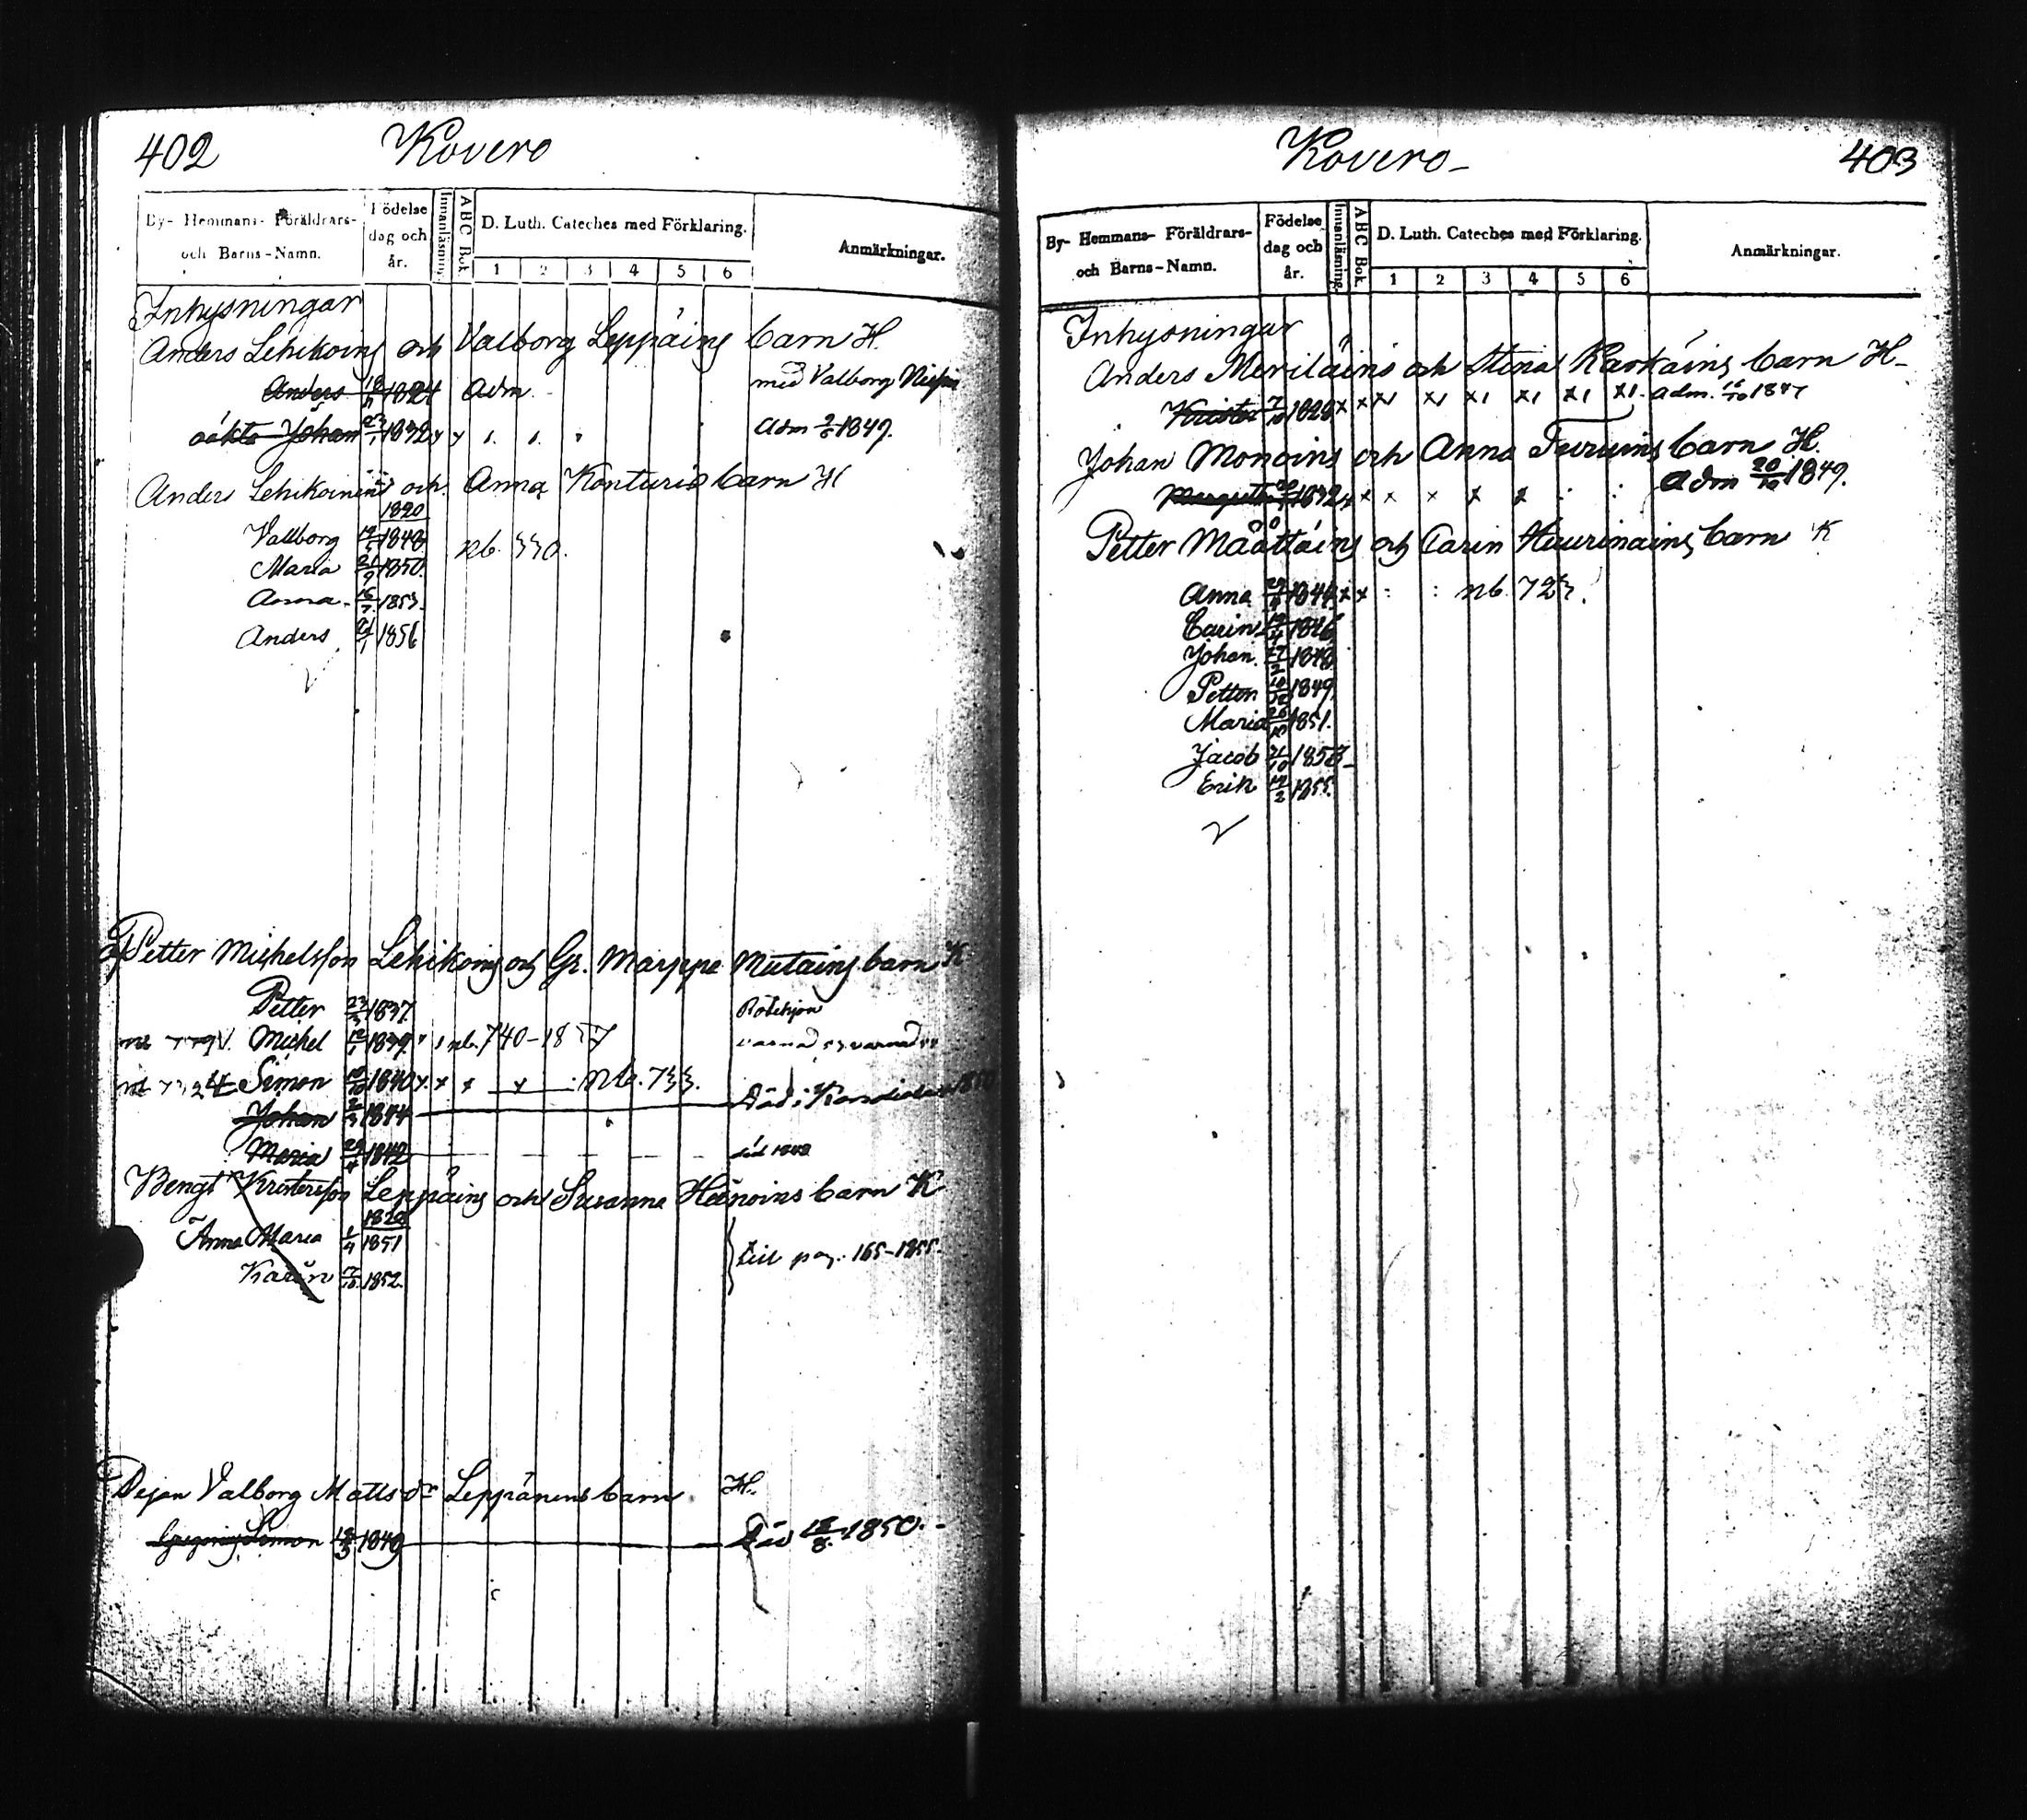 402 Kovero
By- Hemmans- Föräldrars- och Barns-Namn. Födelse dag och år. Innanläsning. ABC Bok. D. Luth. Cateches med Förklaring. 1 2 3 4 5 6 Anmärkningar.
Inhysningar
Anders Lehikoins och Valborg Leppäins barn H.
Anders 1824 Adm. med Valborg
oäkta Johan 23/1 1832 x x Adm 1849.
Anders Lehikoinens och Anna Konturis barn H
1820
Valborg 1848 nb. 330.
Maria 21/9 1850.
Anna 16/7 1853.
Anders 21/1 1856
Petter Michelsson Lehikoins och Gr. Marppa Mutains barn K
Petter 23/3 1837. Rotehjon
Michel 12/1 1839. nb. 740-1857
Simon 10/10 1840 x. x x x nb. 733.
Johan 2/3 1844 Död i 1850
Maria 29/4 1842 död 1842
Bengt Kristersson Leppäins och Susanna Heinoins barn K
1820
Anna Maria 1/4 1851
Karin 7/10 1852. till pag. 165-1855.
Pejan Valborg Mattsdr Leppänens barn H.
Simon 1849 Död 12/8 1850.
Kovero 403
By- Hemmans- Föräldrars- och Barns-Namn. Födelse dag och år. Innanläsning. ABC Bok. D. Luth. Cateches med Förklaring. 1 2 3 4 5 6 Anmärkningar.
Inhysningar
Anders Meriläins och Stina Karkäins barn H
Krister 7/10 1828 x x x1 x1 x1 x1 x1 x1. adm. 1847
Johan Monoins och Anna barn H.
Margreta 1832 x x x x x x Adm 20/10 1849.
Petter Määttäins och Carin Haurinains barn K
Anna 1844 x x : : nb. 723.
Carin 1846
Johan 1848
Petter 1849
Maria 1851.
Jacob 21/10 1853
Erik 1855.